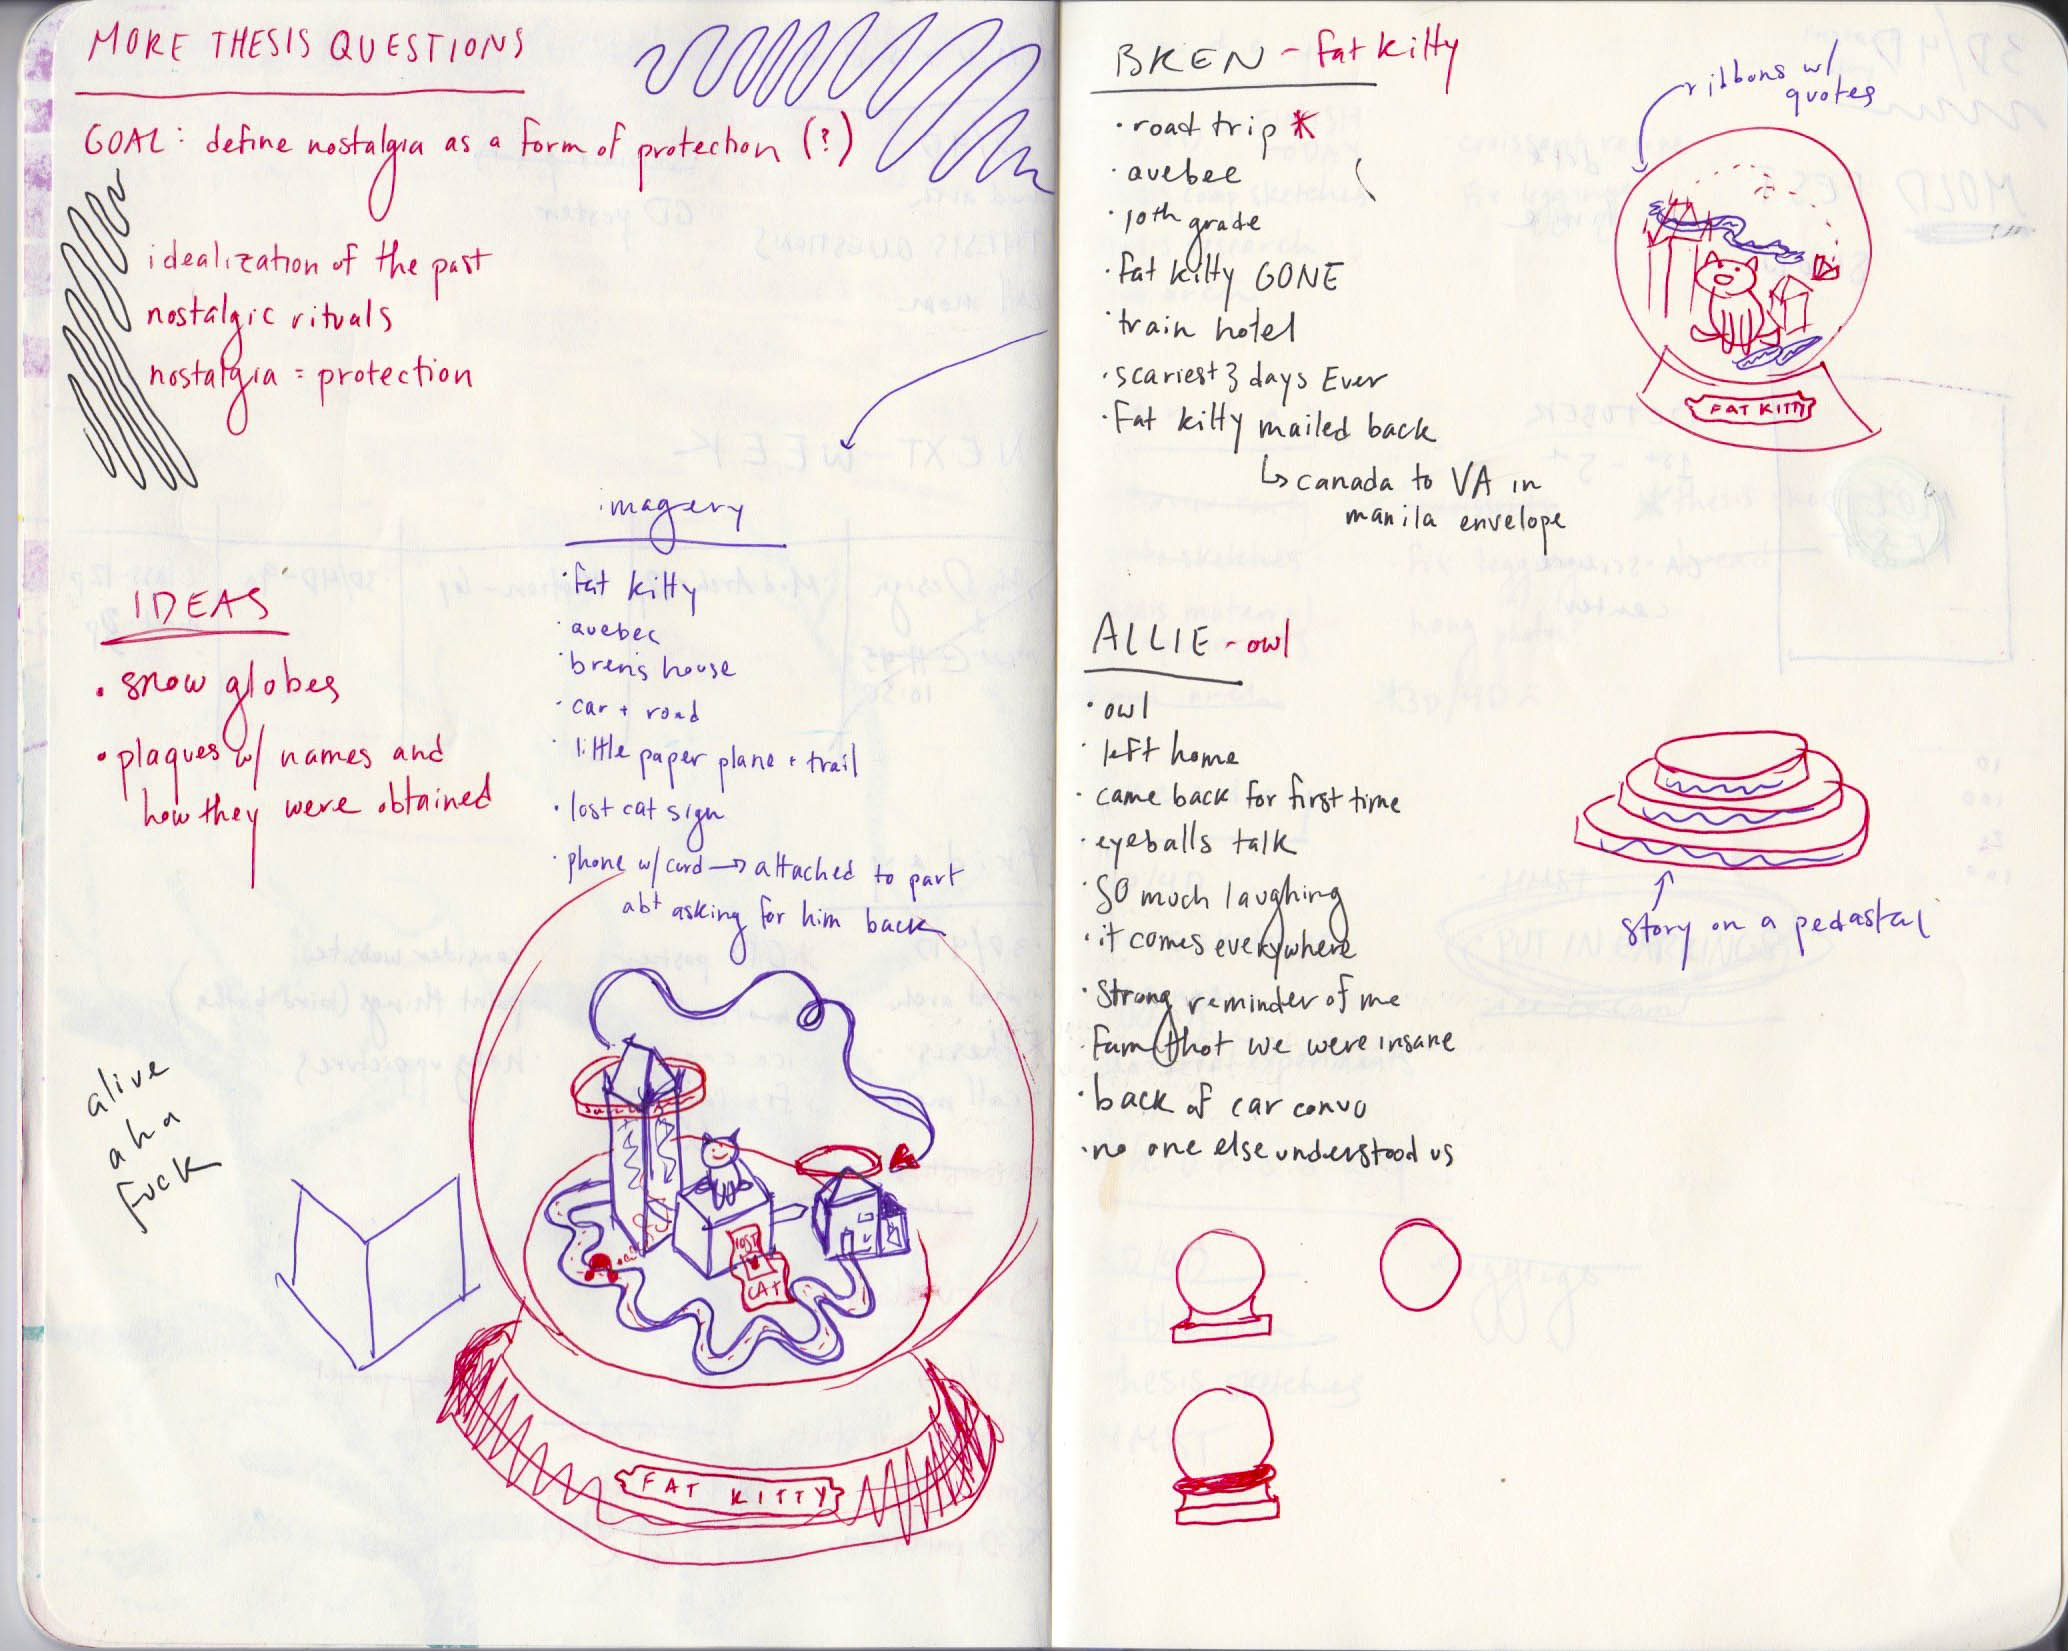 MORE THESIS QUESTIONS
GOAL: define nostalgia as a form of protection (?)
idealization of the past
nostalgic rituals
nostalgia = protection
IDEAS
• snow globes
• plaques w/ names and
how they were obtained
imagery
• fat kitty
• quebec
• bren's house
• car + road
• little paper plane + trail
• lost cat sign
• phone w/ cord → attached to part
abt asking for him back
alive
aha
fuck
LOST
CAT
FAT KITTY
BREN - fat kitty
• road trip *
• quebec
• 10th grade
• fat kitty GONE
• train hotel
• scariest 3 days Ever
• Fat kitty mailed back
↳ canada to VA in
manila envelope
ribbons w/
quotes
FAT KITTY
ALLIE - owl
• owl
• left home
• came back for first time
• eyeballs talk
• SO much laughing
• it comes everywhere
• Strong reminder of me
• Fam thot we were insane
• back of car convo
• no one else understood us
story on a pedastal